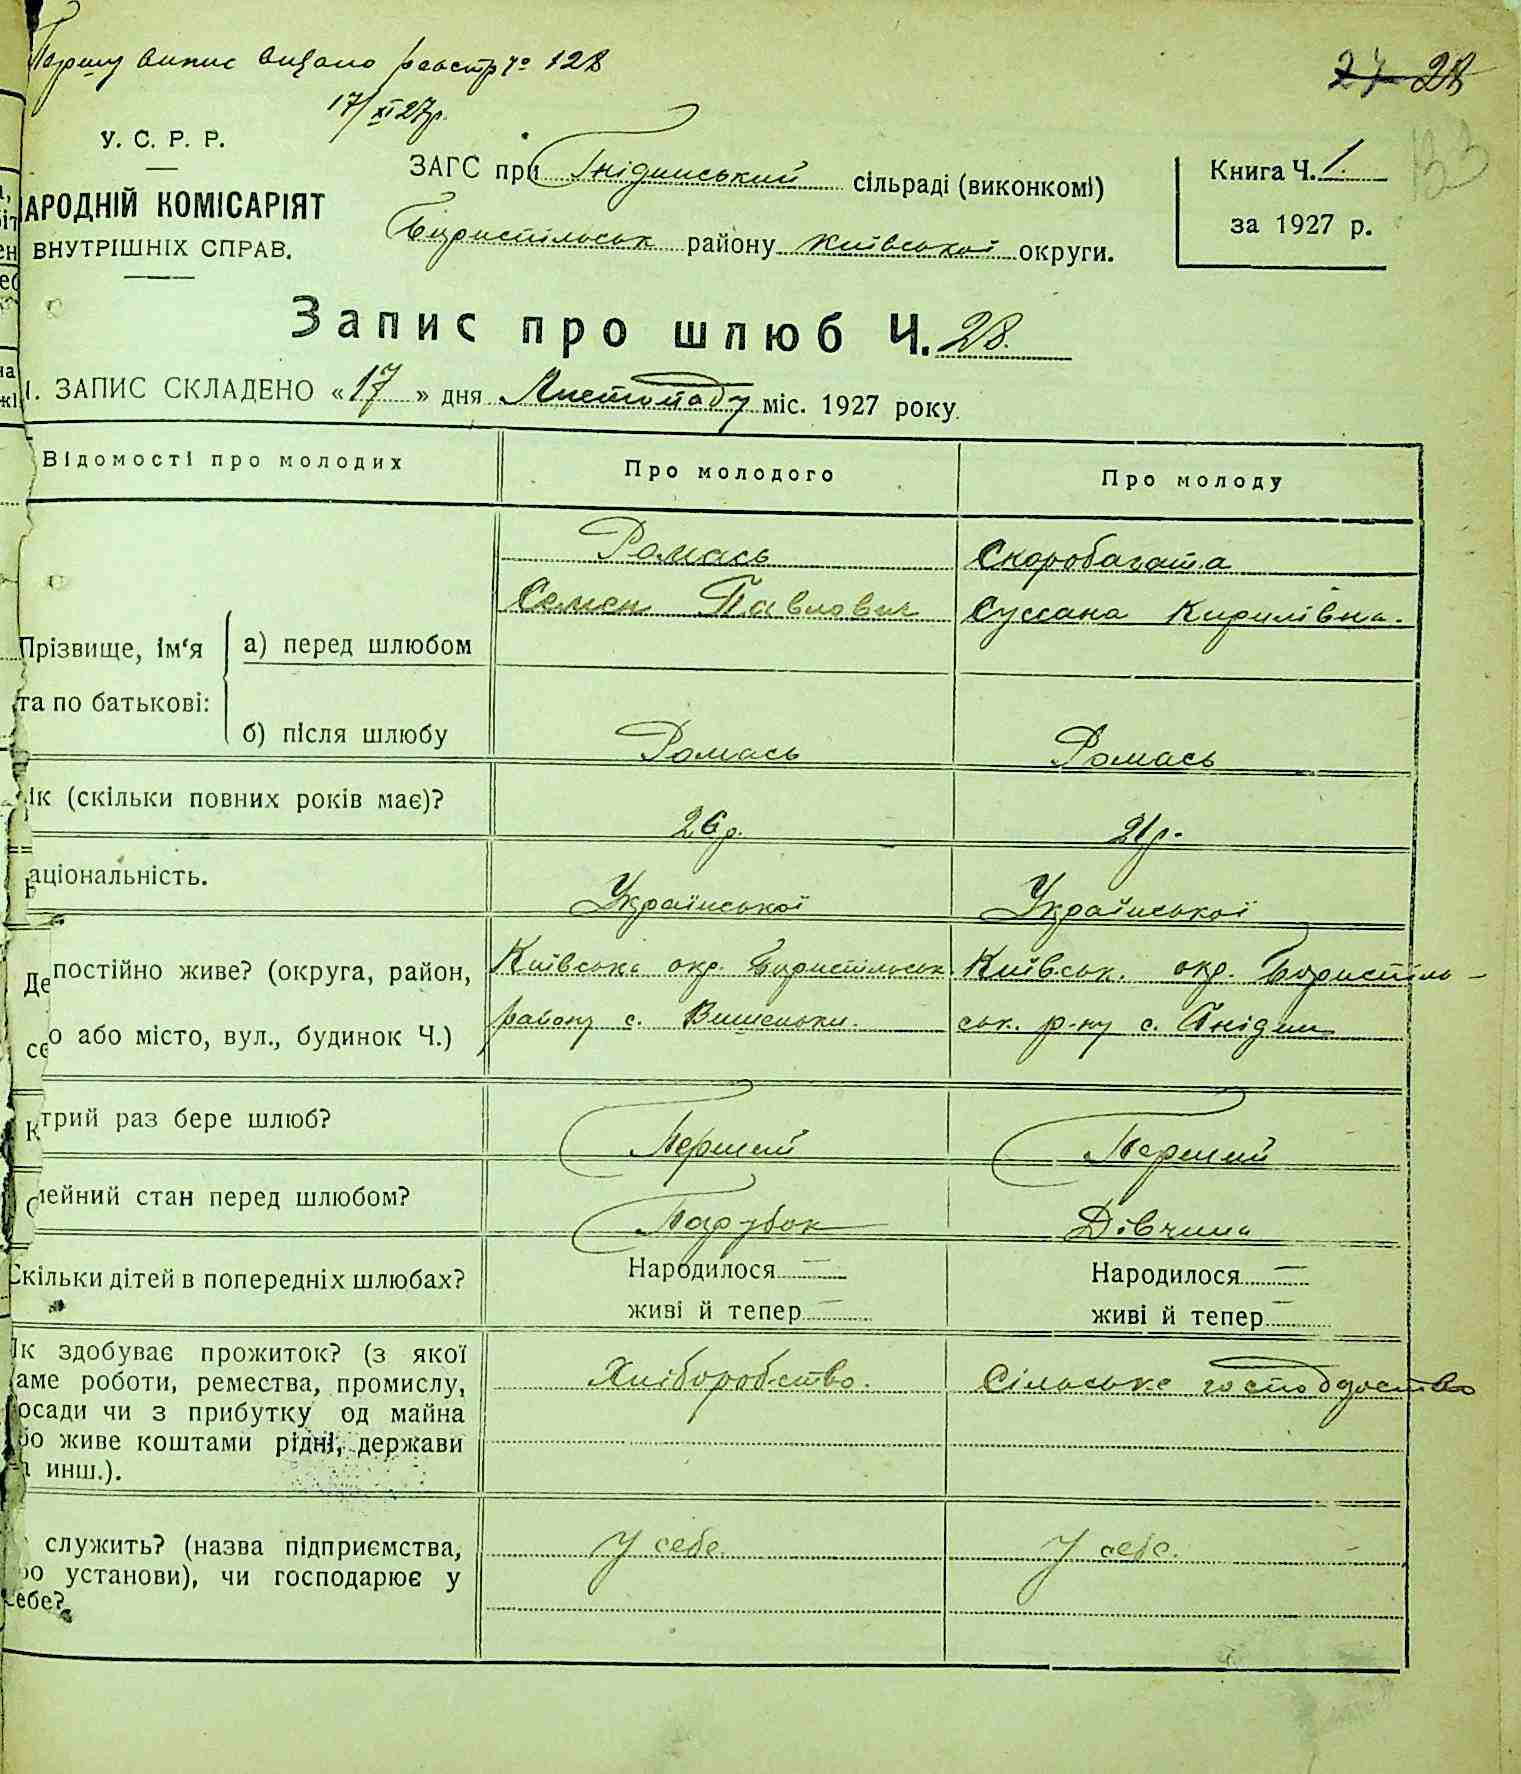 Першу випис видано реєстр № 128
17/XI 27р.
27 28
У. С. Р. Р.
АРОДНІЙ КОМІСАРІЯТ
ВНУТРІШНІХ СПРАВ.
ЗАГС при Гнідинський сільраді (виконкомі)
Бориспільськ району Київської округи.
Книга Ч. 1.
за 1927 р.
Запис про шлюб Ч. 28.
І. ЗАПИС СКЛАДЕНО «17» дня Листопаду міс. 1927 року.
Відомості про молодих Про молодого Про молоду
Ромась Скоробагата
Семен Павлович Суссана Кирилівна.
Прізвище, ім'я та по батькові: а) перед шлюбом
б) після шлюбу Ромась Ромась
ік (скільки повних років має)? 26р. 21р.
Національність. Української Української
Де постійно живе? (округа, район, Київська окр. Бориспільськ Київськ. окр. Бориспіль-
село або місто, вул., будинок Ч.) району с. Вишеньки. ськ. р-ну с. Гнідин
Котрий раз бере шлюб? Перший Перший
Сімейний стан перед шлюбом? Парубок Дівчина
Скільки дітей в попередніх шлюбах? Народилося — Народилося —
живі й тепер — живі й тепер —
Як здобуває прожиток? (з якої
саме роботи, ремества, промислу, Хліборобство. Сільське господарство
посади чи з прибутку од майна
або живе коштами рідні, держави
та инш.).
служить? (назва підприємства, У себе. У себе.
або установи), чи господарює у
себе?